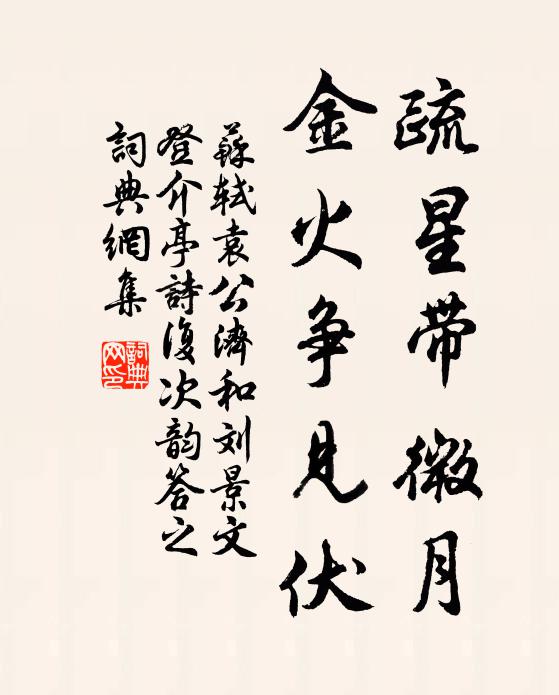 疏星带微月
金火争見伏
蘇轼袁公濟和刘景文
登介亭詩復次韵答之
詞典網集
詞典网印